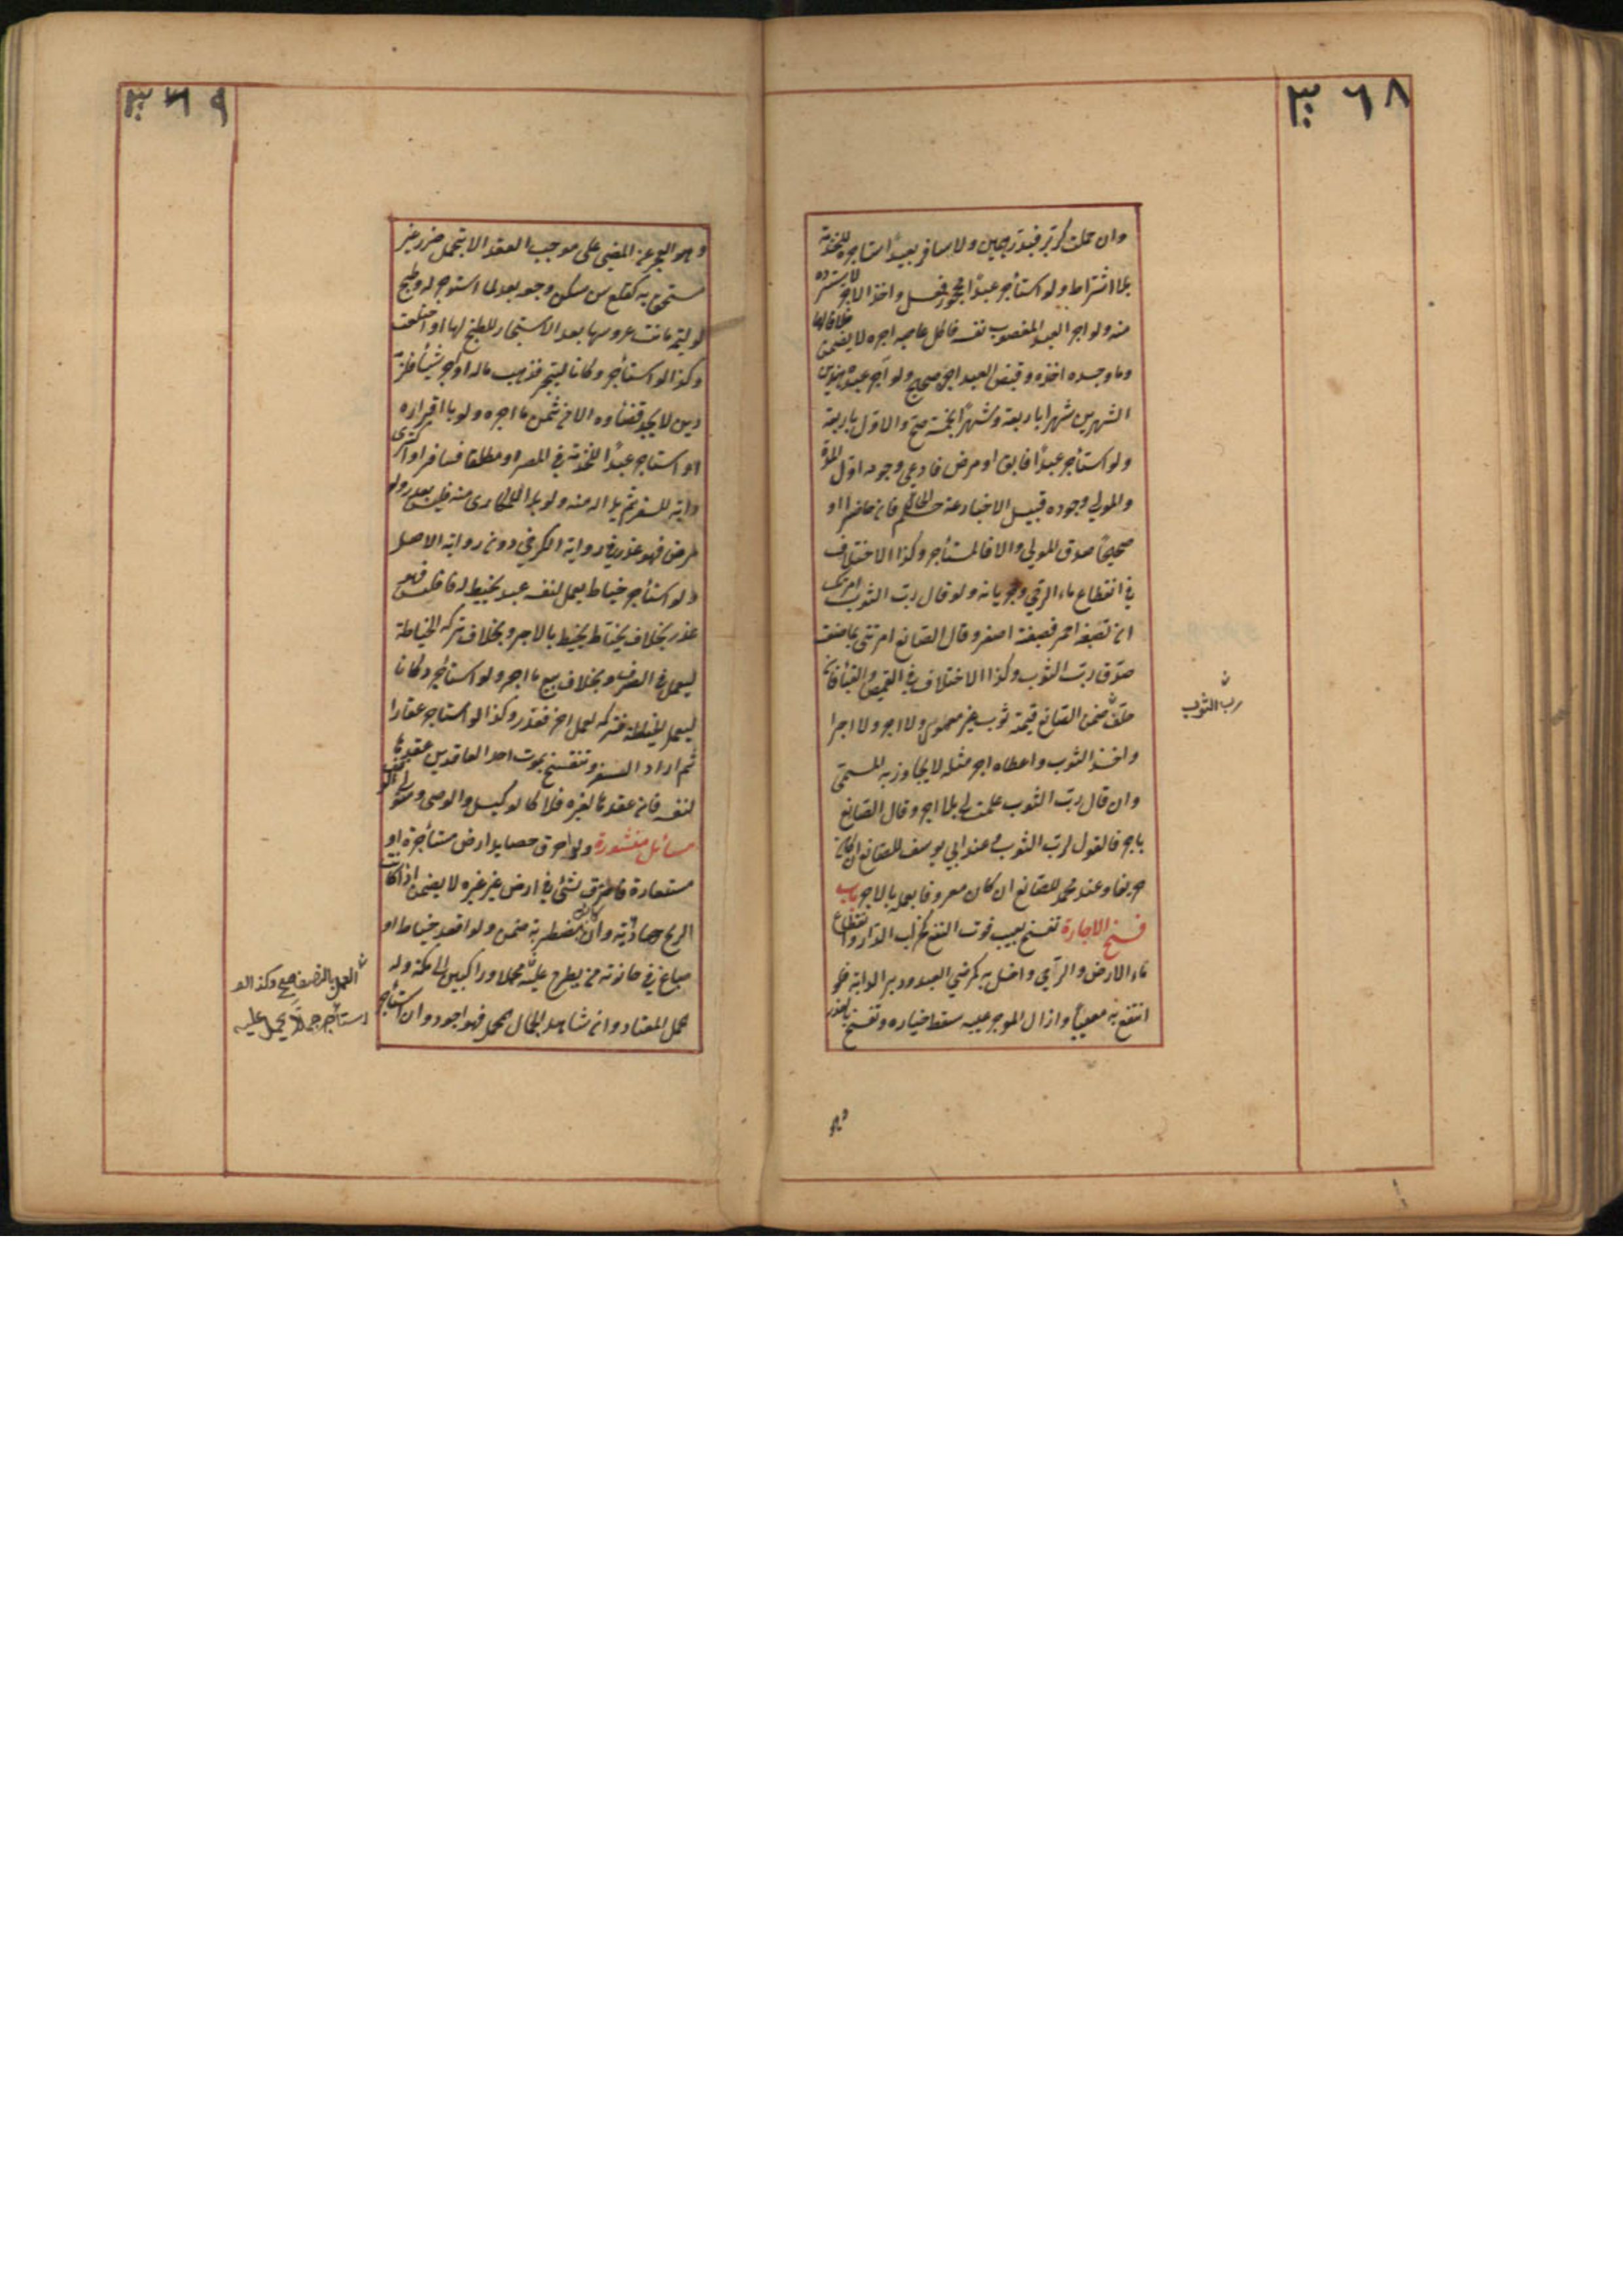 ٣٦٨
وان حملت كر بر فبقدر حمين ولا يسافر بعبد استاجره للخدمة
بلا اشتراط ولو استأجر عبدًا محجورا فعمل واخذ الاجر لا يسترده
منه ولو اجر العبد المغصوب نفسه فاكل غاصبه اجره لا يضمن خلافا لهما
وما وجده اخذه وقبض العبد اجره صحيح ولو آجر عبده هذين
الشهرين شهرا باربعة وشهرًا بخمسة صح والاول باربعة
ولو استأجر عبدًا فابق او مرض فادعى وجوده اول المدة
والمولى وجوده قبيل الاخبار عنه حكم الحال فان حاضرا او
صحيحًا صدق المولى والا فالمستأجر وكذا الاختلاف
في انقطاع ماء الرحى وجريانه ولو قال رب الثوب امرتك
ان تصبغه احمر فصبغته اصفر وقال الصانع امرتني بما صنعت
صدق رب الثوب وكذا الاختلاف في القميص والقباء فان
حلف ضمن الصانع قيمة ثوبه غير معمول ولا اجر ولا اجرا
واخذ الثوب واعطاه اجر مثله لا يجاوز به المسمى
وان قال رب الثوب علمت لي بلا اجر وقال الصانع
باجر فالقول لرب الثوب وعند ابي يوسف للصانع ان كان
حريفا وعند محمد للصانع ان كان معروفا بعمله بالاجر باب
فسخ الاجارة تفسخ بعيب فوت النفع كخراب الدار وانقطاع
ماء الارض والرحى واخل به كمرض العبد ودبر الدابة فلو
انتفع به معيبًا وازال الموجر عيبه سقط خياره وتفسخ بالعذر
رب الثوب
وهو
٣٦٩
وهو العجز عن المضي على موجب العقد الا بتحمل ضرر غير
مستحق به كقلع سن سكن وجعه بعد ما استوجر له وطبخ
لوليمة ماتت عروسها بعد الاستيجار للطبخ لها او اختلعت
وكذا لو استأجر دكانا ليتجر فذهب ماله او اجر شيئًا فلزمه
دين لا يجد قضاؤه الا من ثمن ما اجره ولو باقراره
او استاجر عبدًا للخدمة في المصر او مطلقا فسافر او اكترى
دابة للسفر ثم بدا له منه ولو بدا للمكاري منه فليس بعذر ولو
مرض فهو عذر في رواية الكرخي دون رواية الاصل
ولو استأجر خياط يعمل لنفسه عبد يخيط له فافلس فهو
عذر بخلاف خياط يخيط بالاجر وبخلاف تركه الخياطة
ليعمل في الصرف وبخلاف بيع ما اجره ولو استأجر دكانا
ليعمل الخياطة فتركه لعمل اخر فعذر وكذا لو استاجر عقارا
ثم اراد السفر وتنفسخ بموت احد العاقدين عقدها
لنفسه فان عقدها لغيره فلا كالوكيل والوصي ومتولي الوقف
مسائل منثورة ولو احرق حصايد ارض مستأجرة او
مستعارة فاحترق شئ في ارض غيره لا يضمن اذا كانت
الريح هادئة وان كانت مضطربة ضمن ولو اقعد خياط او
صباغ في حانوته من يطرح عليه محملا وراكبين الى مكة وله
حمل المعتاد وان شاهد الجمال المحمل فهو اجود وان استأجر
العمل بالنصف صح وكذا لو
استأجر جملًا يحمل عليه